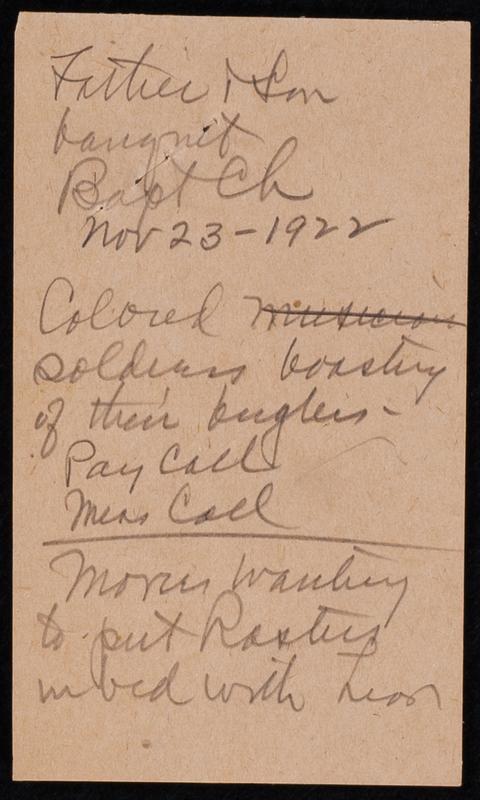 Father & Son
banquet
Bapt Ch
Nov 23-1922
Colored musician
soldiers boasting
of their buglers-
Pay Call
Mess Call
Movers wanting
to put Rastus
in bed with Lion